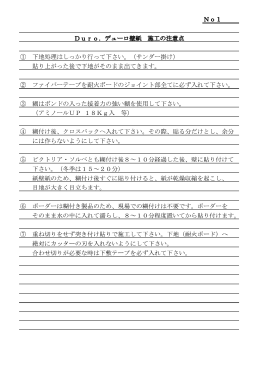 No1
Duro．デューロ壁紙　施工の注意点
①　下地処理はしっかり行って下さい。（サンダー掛け）
貼り上がった後で下地がそのまま出てきます。
②　ファイバーテープを耐火ボードのジョイント部全てに必ず入れて下さい。
③　糊はボンドの入った接着力の強い糊を使用して下さい。
（アミノールＵＰ　１８Ｋｇ入　等）
④　糊付け後、クロスパックへ入れて下さい。その際、折る部分だけとし、余分
には作らないようにして下さい。
⑤　ビクトリア・ソルベとも糊付け後８～１０分経過した後、壁に貼り付けて
下さい。（冬季は１５～２０分）
紙壁紙のため、糊付け後すぐに貼り付けすると、紙が乾燥収縮を起こし、
目地が大きく目立ちます。
⑥　ボーダーは糊付き製品のため、現場での糊付けは不要です。ボーダーを
そのまま水の中に入れて濡らし、８～１０分程度置いてから貼り付けて下さい。
⑦　重ね切りをせず突き付け貼りで施工して下さい。下地（耐火ボード）へ
絶対にカッターの刃を入れないようにして下さい。
合わせ切りが必要な時は下敷テープを必ず入れて下さい。